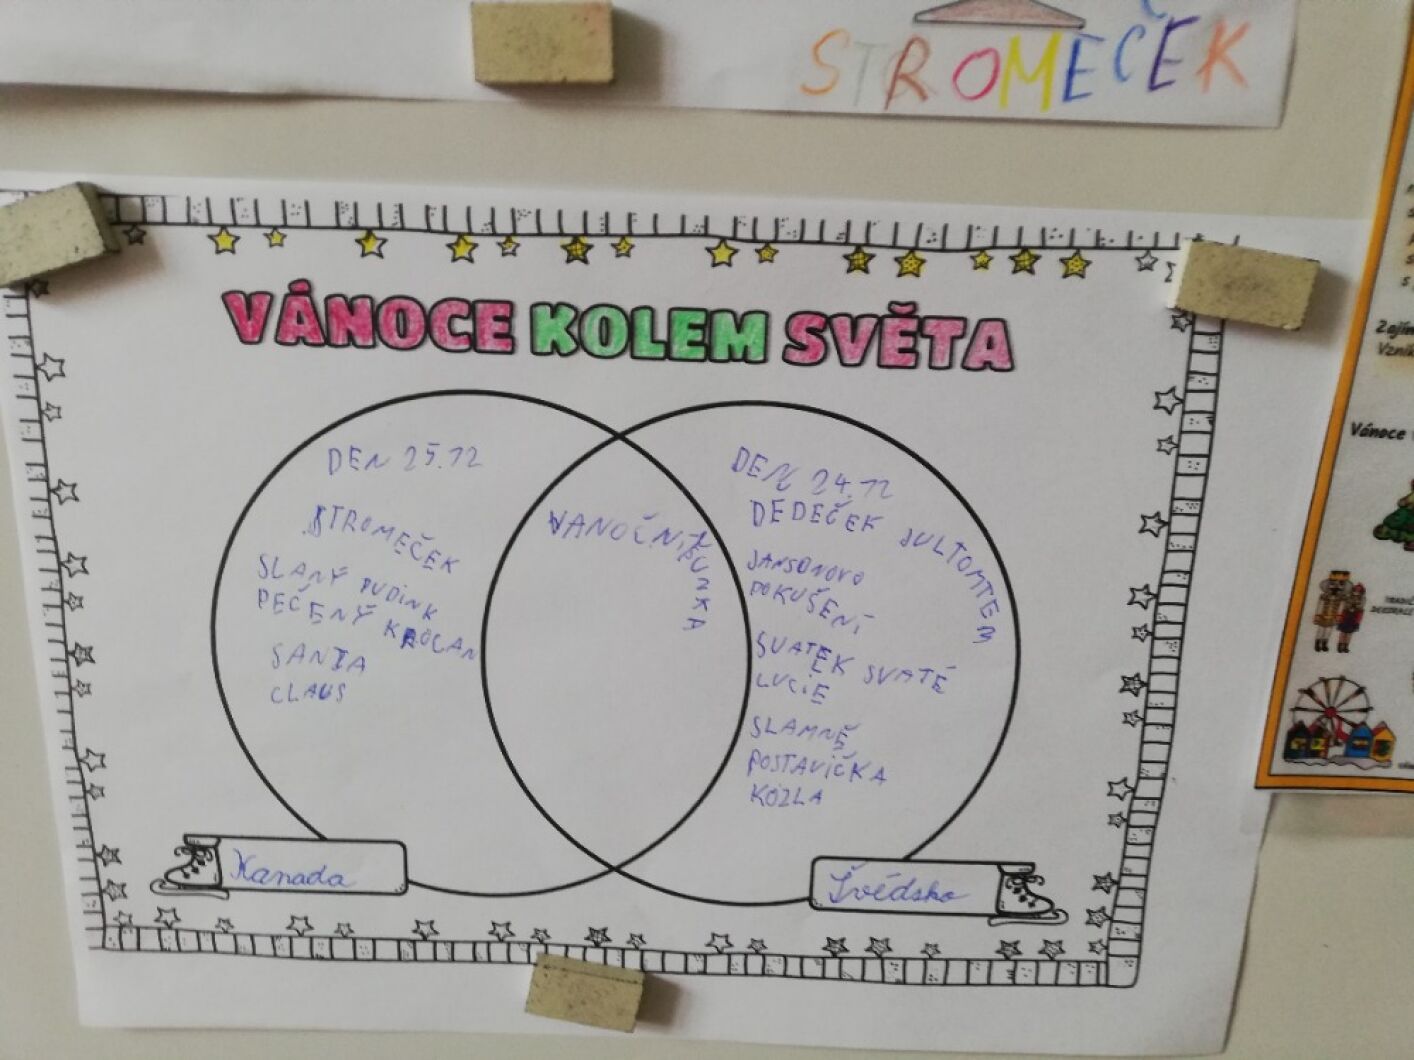 STROMEČEK
VÁNOCE KOLEM SVĚTA
DEN 25.12
STROMEČEK
SLANÝ PUDINK
PEČENÝ KROCAN
SANTA
CLAUS
VANOČNI
DEN 24.12
DĚDEČEK JULTOMTEM
JANSONOVO
POKUŠENÍ
SVATEK SVATÉ
LUCIE
SLAMNĚ
POSTAVIČKA
KOZLA
Kanada
Švédsko
Vánoce